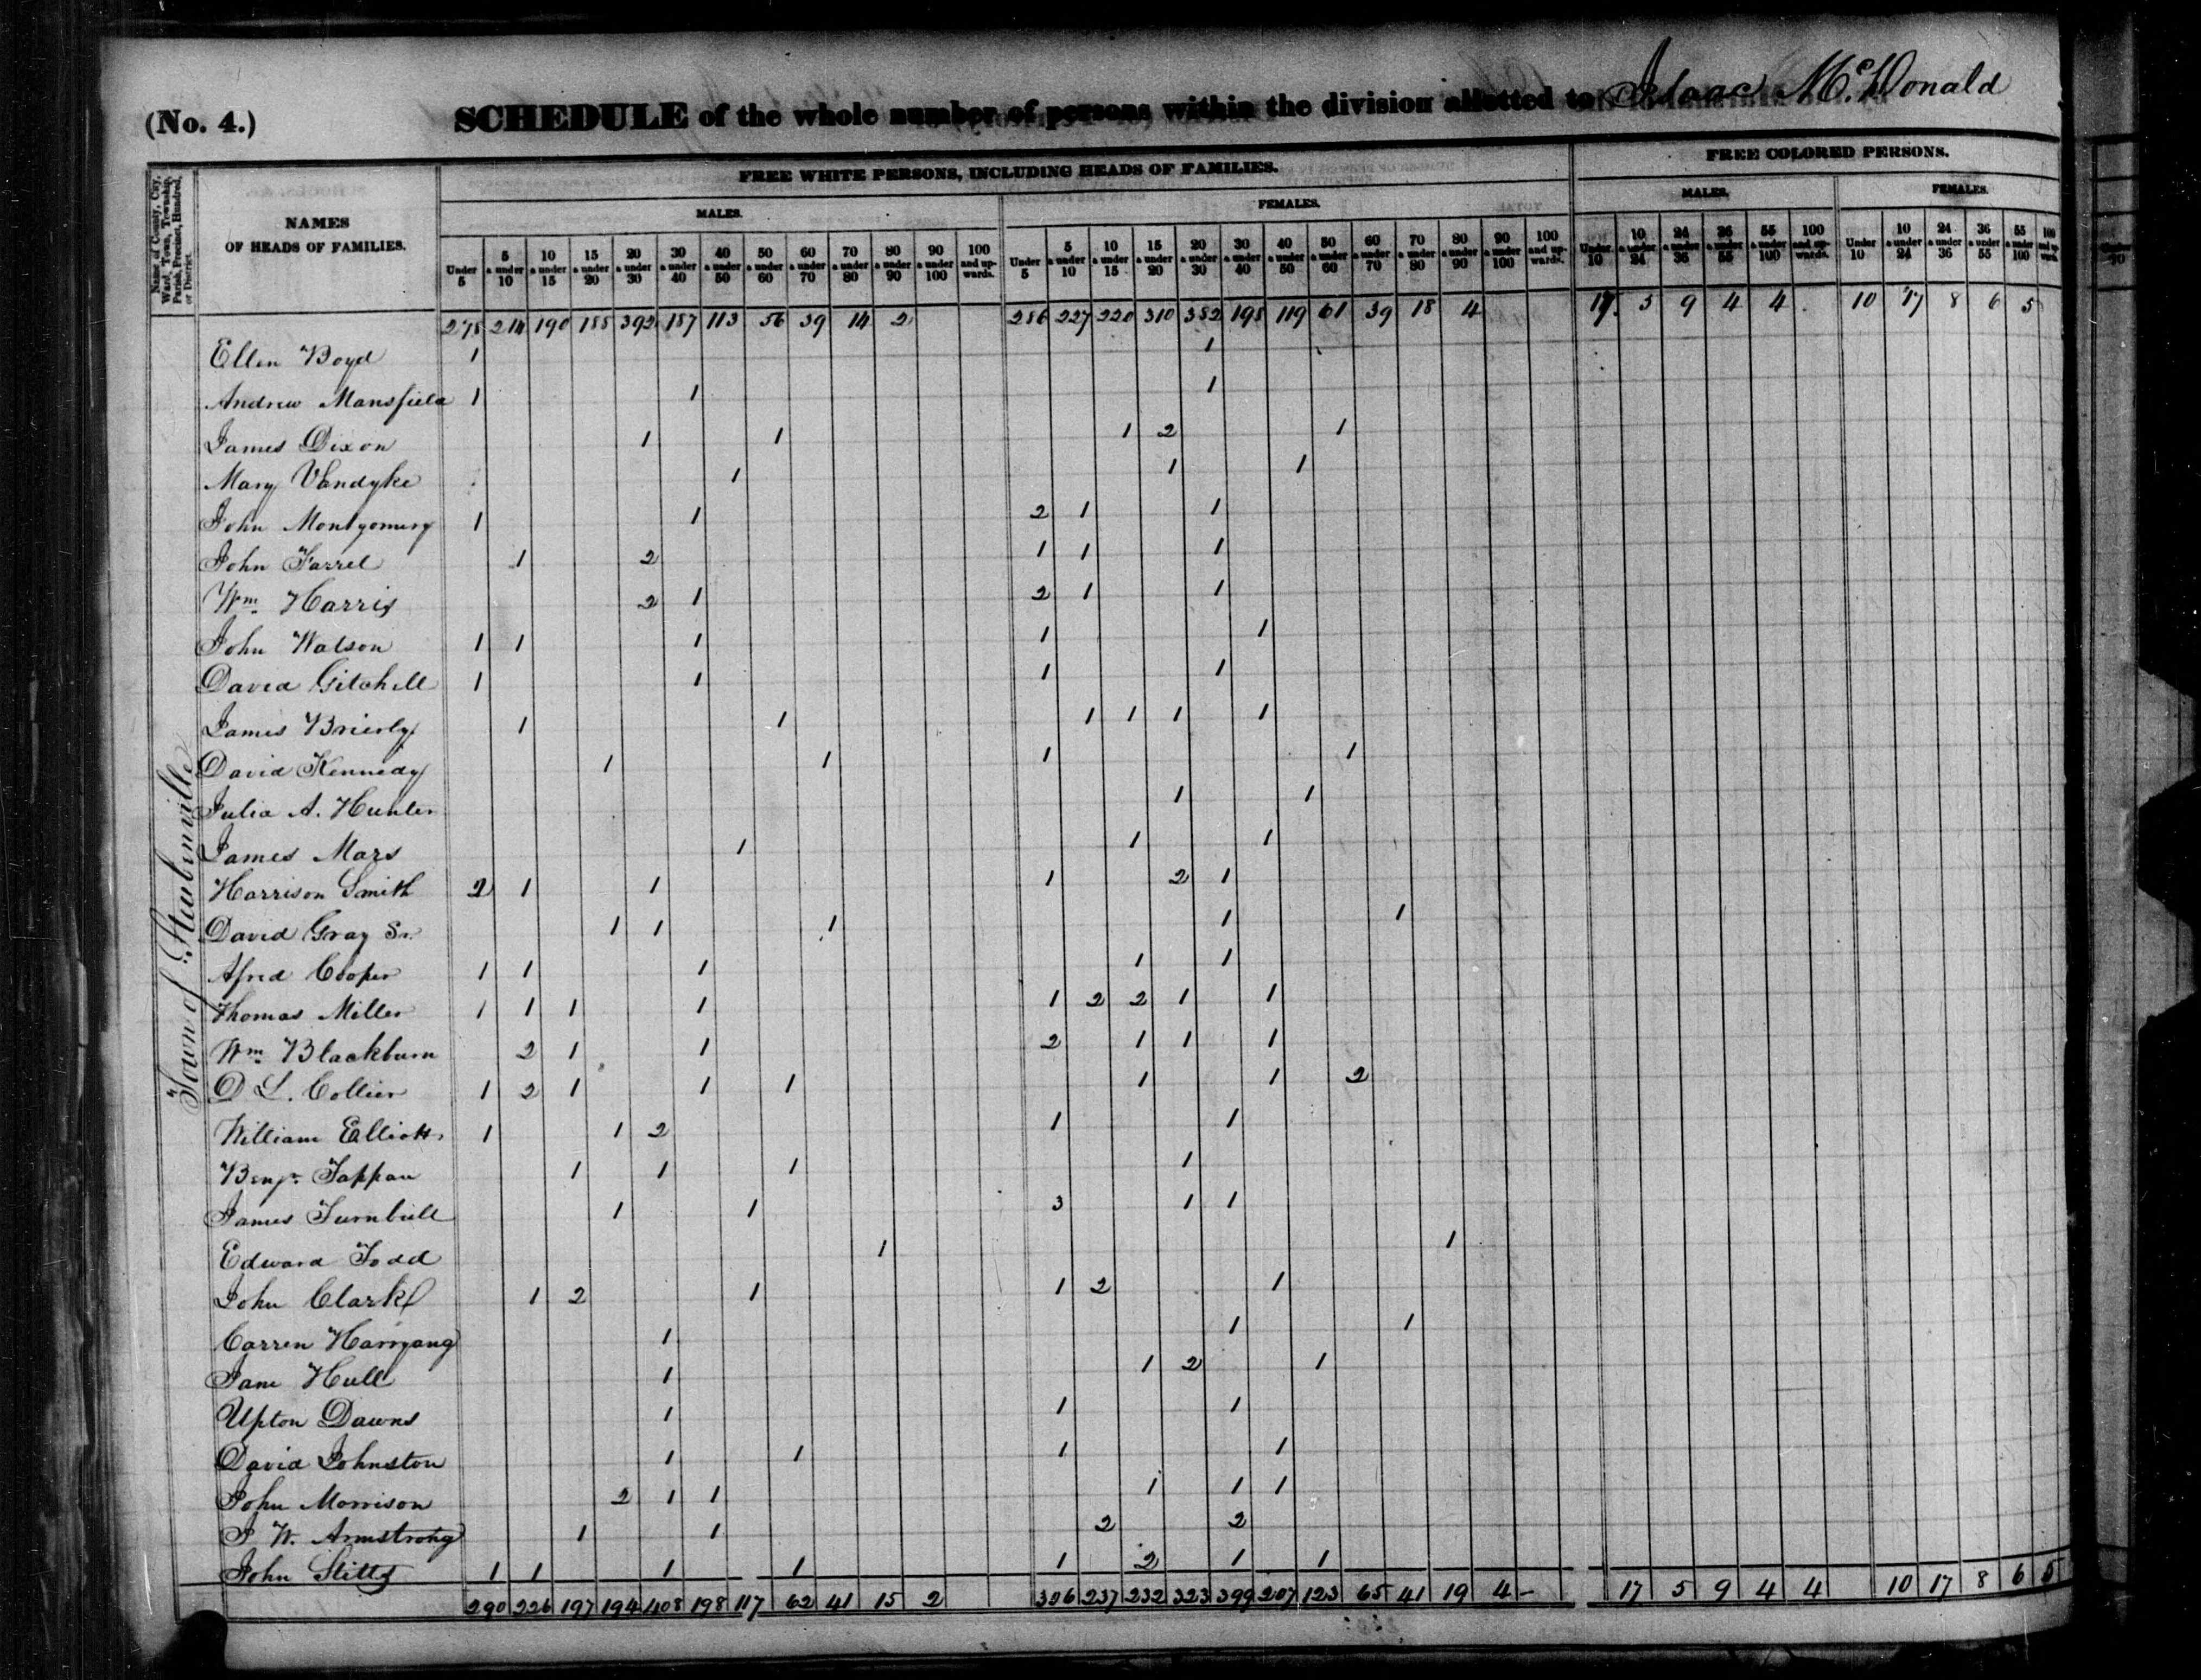 (No. 4.)
SCHEDULE of the whole number of persons within the division allotted to Isaac McDonald
Name of County, City, Ward, Town, Township, Parish, Precinct, Hundred, or District.
NAMES OF HEADS OF FAMILIES.
FREE WHITE PERSONS, INCLUDING HEADS OF FAMILIES.
FREE COLORED PERSONS.
MALES. FEMALES. MALES. FEMALES.
Under 5 | 5 & under 10 | 10 & under 15 | 15 & under 20 | 20 & under 30 | 30 & under 40 | 40 & under 50 | 50 & under 60 | 60 & under 70 | 70 & under 80 | 80 & under 90 | 90 & under 100 | 100 and upwards. | Under 5 | 5 & under 10 | 10 & under 15 | 15 & under 20 | 20 & under 30 | 30 & under 40 | 40 & under 50 | 50 & under 60 | 60 & under 70 | 70 & under 80 | 80 & under 90 | 90 & under 100 | 100 and upwards. | Under 10 | 10 & under 24 | 24 & under 36 | 36 & under 55 | 55 & under 100 | 100 and upwards. | Under 10 | 10 & under 24 | 24 & under 36 | 36 & under 55 | 55 & under 100
214 190 392 187 113 56 39 14 2 286 227 220 310 382 198 119 61 39 18 4 17 5 9 4 4 10 17 8 6 5
Town of Steubenville
Ellen Boyd 1 1
Andrew Mansfield 1 1 1
James Dixon 1 1 1 2 1
Mary Vandyke 1 1 1
John Montgomery 1 1 2 1 1
John Farrel 1 2 1 1 1
Wm. Harris 2 1 2 1 1
John Watson 1 1 1 1 1
David Gitchell 1 1 1 1
James Brierly 1 1 1 1 1 1
David Kennedy 1 1 1 1
Julia A. Hunter 1 1
James Mars 1 1 1
Harrison Smith 2 1 1 1 2 1
David Gray Sr. 1 1 1 1 1
Afred Cooper 1 1 1 1 1
Thomas Miller 1 1 1 1 1 2 2 1 1
Wm. Blackburn 2 1 1 2 1 1 1
D L. Collier 1 2 1 1 1 1 1 2
William Elliott 1 1 2 1 1
Benj. Tappan 1 1 1 1
James Turnbull 1 1 3 1 1
Edward Todd 1 1
John Clark 1 2 1 1 2 1
1 1 1
Jane Hull 1 1 2 1
Upton Dawns 1 1 1
David Johnston 1 1 1 1
John Morrison 2 1 1 1 1 1
J W. Armstrong 1 1 2 2
John Stitts 1 1 1 1 1 2 1 1
290 226 197 194 408 198 117 62 41 15 2 306 237 232 323 399 207 123 65 41 19 4 – 17 5 9 4 4 10 17 8 6 5